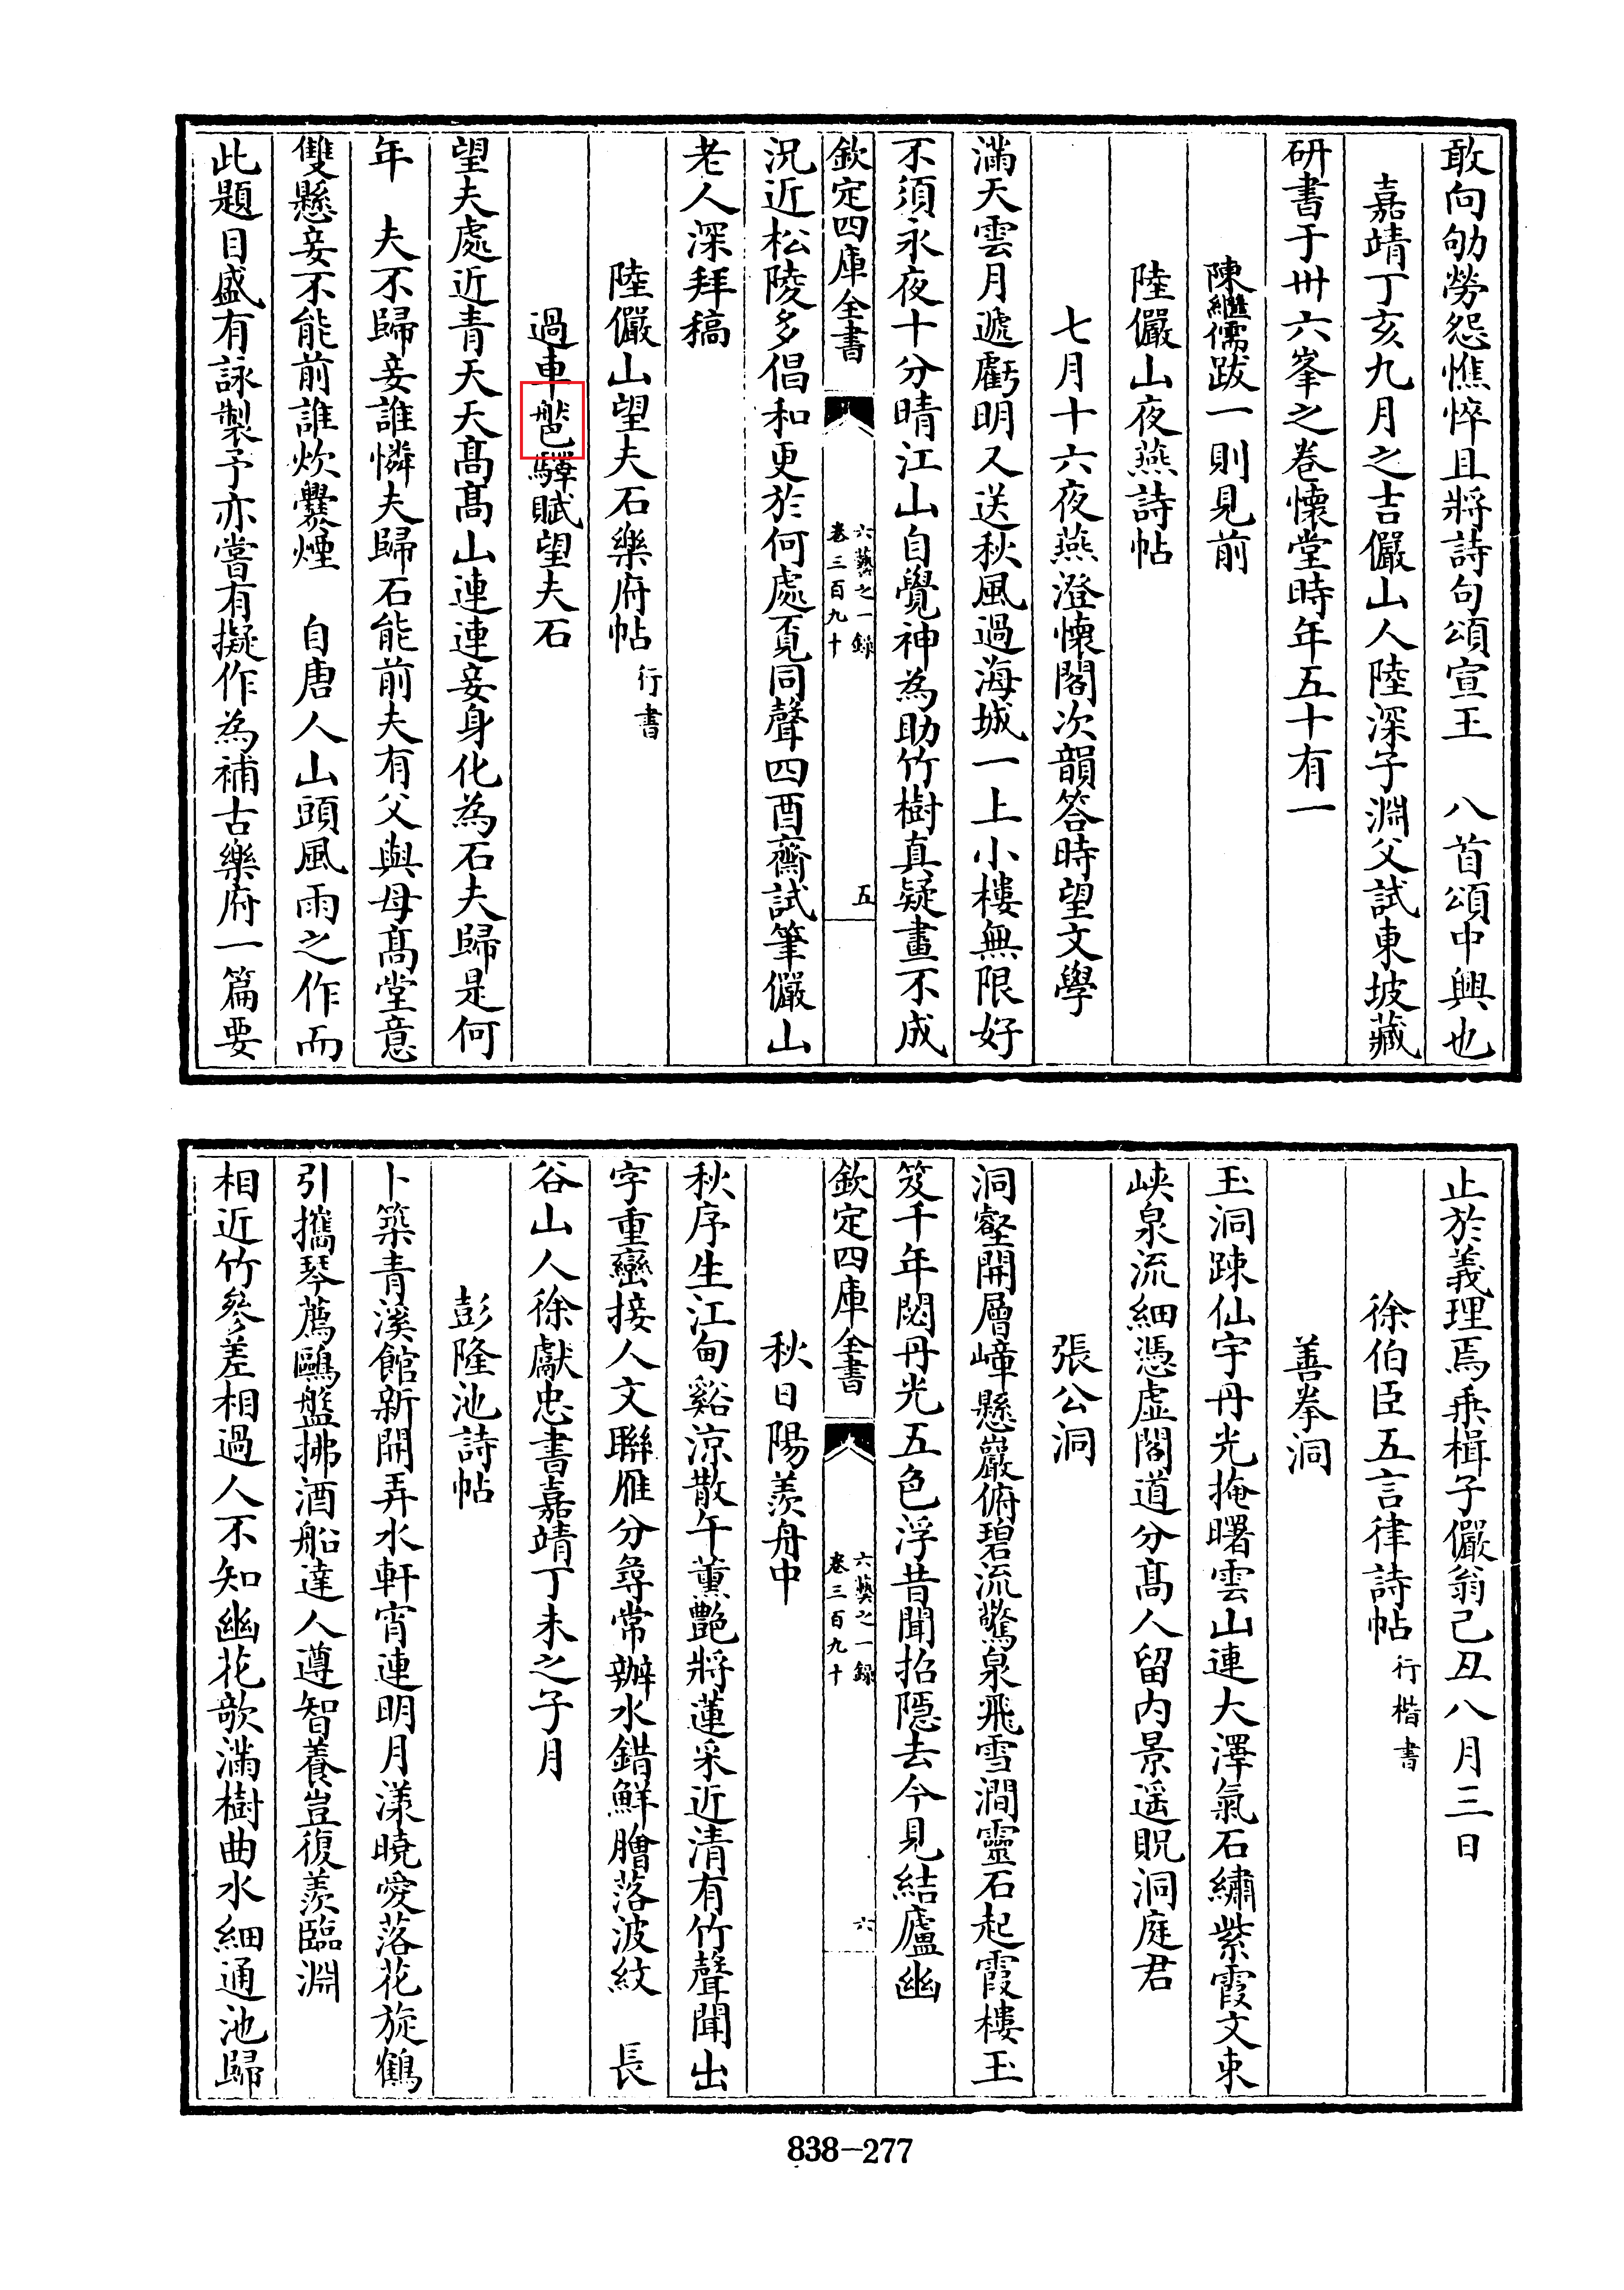 敢向劬勞怨憔悴且將詩句頌宣王　八首頌中興也
嘉靖丁亥九月之吉儼山人陸深子淵父試東坡藏
研書于卅六峯之巻懷堂時年五十有一
陳繼儒跋一則見前
陸儼山夜燕詩帖
七月十六夜燕澄懷閣次韻答時望文學
滿天雲月遞虧明又送秋風過海城一上小樓無限好
不須永夜十分晴江山自覺神為助竹樹真疑畫不成
欽定四庫全書
六藝之一録
卷三百九十
五
況近松陵多倡和更於何處覔同聲四酉齋試筆儼山
老人深拜稿
陸儼山望夫石樂府帖行書
過車驛賦望夫石
望夫處近青天天髙髙山連連妾身化為石夫歸是何
年　夫不歸妾誰憐夫歸石能前夫有父與母髙堂意
雙懸妾不能前誰炊爨煙　自唐人山頭風雨之作而
此題目盛有詠製予亦嘗有擬作為補古樂府一篇要
止於義理焉乗楫子儼翁己丑八月三日
徐伯臣五言律詩帖行楷書
善拳洞
玉洞踈仙宇丹光掩曙雲山連大澤氣石繡紫霞文束
峽泉流細憑虛閣道分髙人留内景遥貺洞庭君
張公洞
洞壑開層嶂懸巖俯碧流驚泉飛雪澗靈石起霞樓玉
笈千年閟丹光五色浮昔聞招隠去今見結廬幽
欽定四庫全書
六藝之一録
卷三百九十
六
秋日陽羨舟中
秋序生江甸谿凉散午薰艷將蓮采近清有竹聲聞出
字重巒接人文聯雁分尋常辦水錯鮮膾落波紋　長
谷山人徐獻忠書嘉靖丁未之子月
彭隆池詩帖
卜築青溪館新開弄水軒宵連明月漾曉愛落花旋鶴
引攜琴薦鷗盤拂酒船達人遵智養豈復羨臨淵
相近竹參差相過人不知幽花欹滿樹曲水細通池歸
838-277